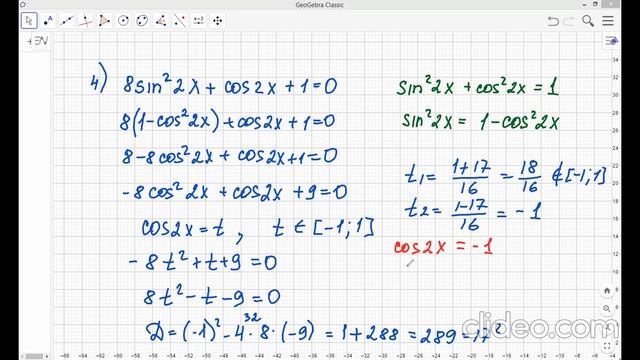 GeoGebra Classic
4) 8sin²2x + cos2x + 1 = 0
8(1-cos²2x) + cos2x + 1 = 0
8 - 8cos²2x + cos2x + 1 = 0
-8cos²2x + cos2x + 9 = 0
cos2x = t, t ∈ [-1;1]
-8t² + t + 9 = 0
8t² - t - 9 = 0
D = (-1)² - 4·8·(-9) = 1 + 288 = 289 = 17²
32
sin²2x + cos²2x = 1
sin²2x = 1 - cos²2x
t1 = (1+17)/16 = 18/16 ∉ [-1;1]
t2 = (1-17)/16 = -1
cos2x = -1
clideo.com